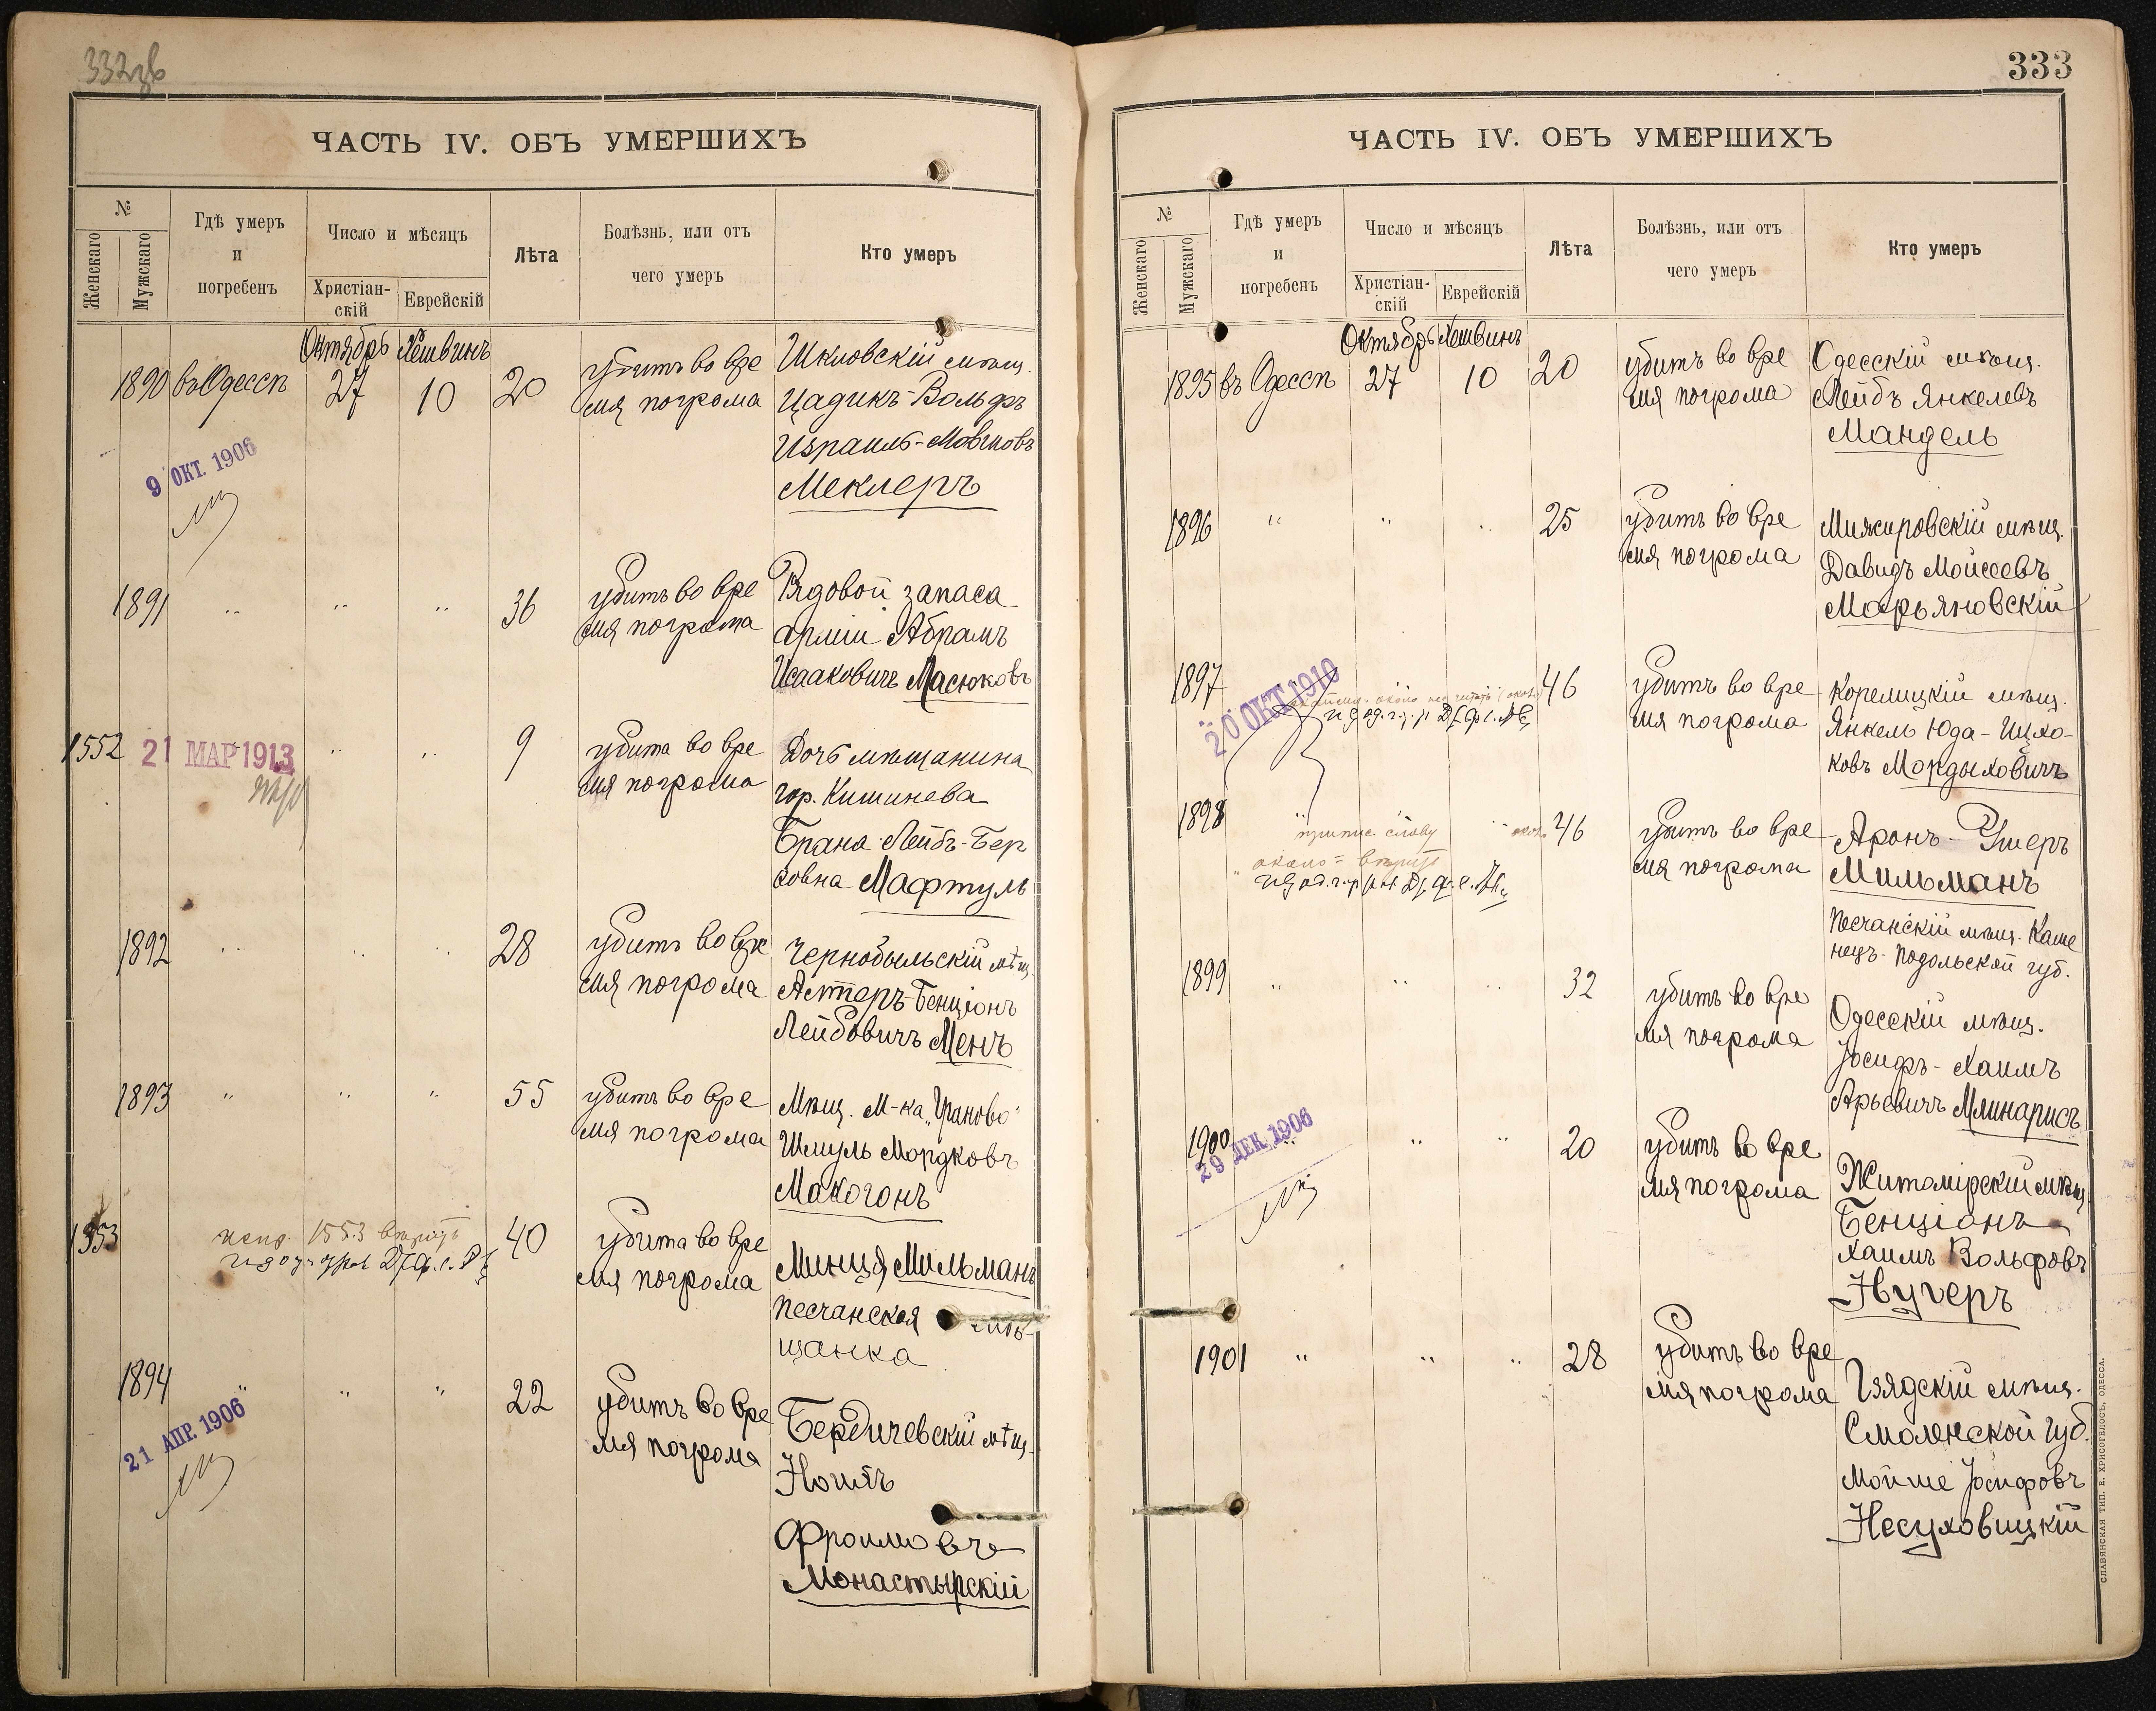 332
ЧАСТЬ IV. ОБЪ УМЕРШИХЪ
№
Женскаго
Мужскаго
Гдѣ умеръ
и
погребенъ
Число и мѣсяцъ
Христіан-
скій
Еврейскій
Лѣта
Болѣзнь, или отъ
чего умеръ
Кто умеръ
Октябрь Хешвинъ
1890 въ Одессѣ 27 10 20 убитъ во вре
мя погрома
Шкловскій мѣщ.
Цадикъ-Вольфъ
Израиль-Мовшовъ
Меклеръ
9 ОКТ. 1906
1891 " " " 36 убитъ во вре
мя погрома
Рядовой запаса
арміи Абрамъ
Исааковичъ Масюковъ
1552 21 МАР 1913 " " 9 убита во вре
мя погрома
Дочь мѣщанина
гор. Кишинева
Брана Лейбъ-Бер
ковна Мафтуль
1892 " " " 28 убитъ во вре
мя погрома
Чернобыльскій мѣщ.
Алтеръ-Бенціонъ
Лейбовичъ Менъ
1893 " " " 55 убитъ во вре
мя погрома
Мѣщ. М-ка „Ураново"
Шмуль Мордковъ
Макогонъ
1553 40 убита во вре
мя погрома
испр. 1553 вѣрить
Минця Мильманъ
песчанская мѣ-
щанка
1894 " " " 22 убитъ во вре
мя погрома
Бердичевскій мѣщ.
Фроимовъ
Монастырскій
21 АПР. 1906
333
ЧАСТЬ IV. ОБЪ УМЕРШИХЪ
№
Женскаго
Мужскаго
Гдѣ умеръ
и
погребенъ
Число и мѣсяцъ
Христіан-
скій
Еврейскій
Лѣта
Болѣзнь, или отъ
чего умеръ
Кто умеръ
Октябрь Хешвинъ
1895 въ Одессѣ 27 10 20 убитъ во вре
мя погрома
Одесскій мѣщ.
Лейбъ Янкелевъ
Мандель
1896 " " " 25 убитъ во вре
мя погрома
Межировскій мѣщ.
Давидъ Мойсеевъ
Марьяновскій
1897 46 убитъ во вре
мя погрома
20 ОКТ 1910
Корелицкій мѣщ.
Янкель Юда-Ицко-
ковъ Мордыховичъ
1898 " " 46 убитъ во вре
мя погрома
припис. слову
около = вѣрить
Аронъ-Ушеръ
Мильманъ
Песчанскій мѣщ. Каме
нецъ-Подольской губ.
1899 " " " 32 убитъ во вре
мя погрома
Одесскій мѣщ.
Іосифъ-Хаимъ
Арьевичъ Млинарисъ
1900 " " " 20 убитъ во вре
мя погрома
29 ДЕК. 1906
Житомірскій мѣщ.
Бенціонъ
Хаимъ Вольфовъ
Нугеръ
1901 " " " 28 убитъ во вре
мя погрома
Смоленской губ.
Мойше Іосифовъ
Несуховицкій
СЛАВЯНСКАЯ ТИП. Е. ХРИСОГЕЛОСЪ, ОДЕССА.